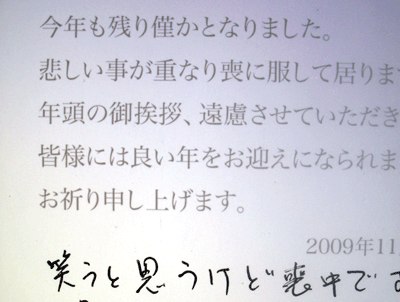 今年も残り僅かとなりました。
悲しい事が重なり喪に服して居りま
年頭の御挨拶、遠慮させていただき
皆様には良い年をお迎えになられま
お祈り申し上げます。
2009年11
笑うと思うけど喪中です